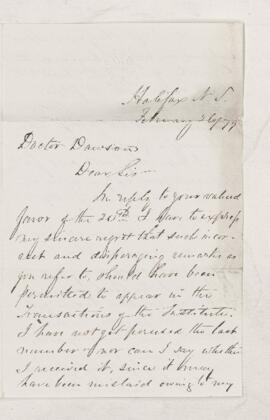 Halifax N. S.
February 26/79
Doctor Dawson
Dear Sir
In reply to your valued
favor of the 20th I have to express
my sincere regret that such incor-
rect and disparaging remarks as
you refer to, should have been
permitted to appear in the
Transactions of the Institute.
I have not yet perused the last
number nor can I say whether
I received it, since it may
have been mislaid owing to my